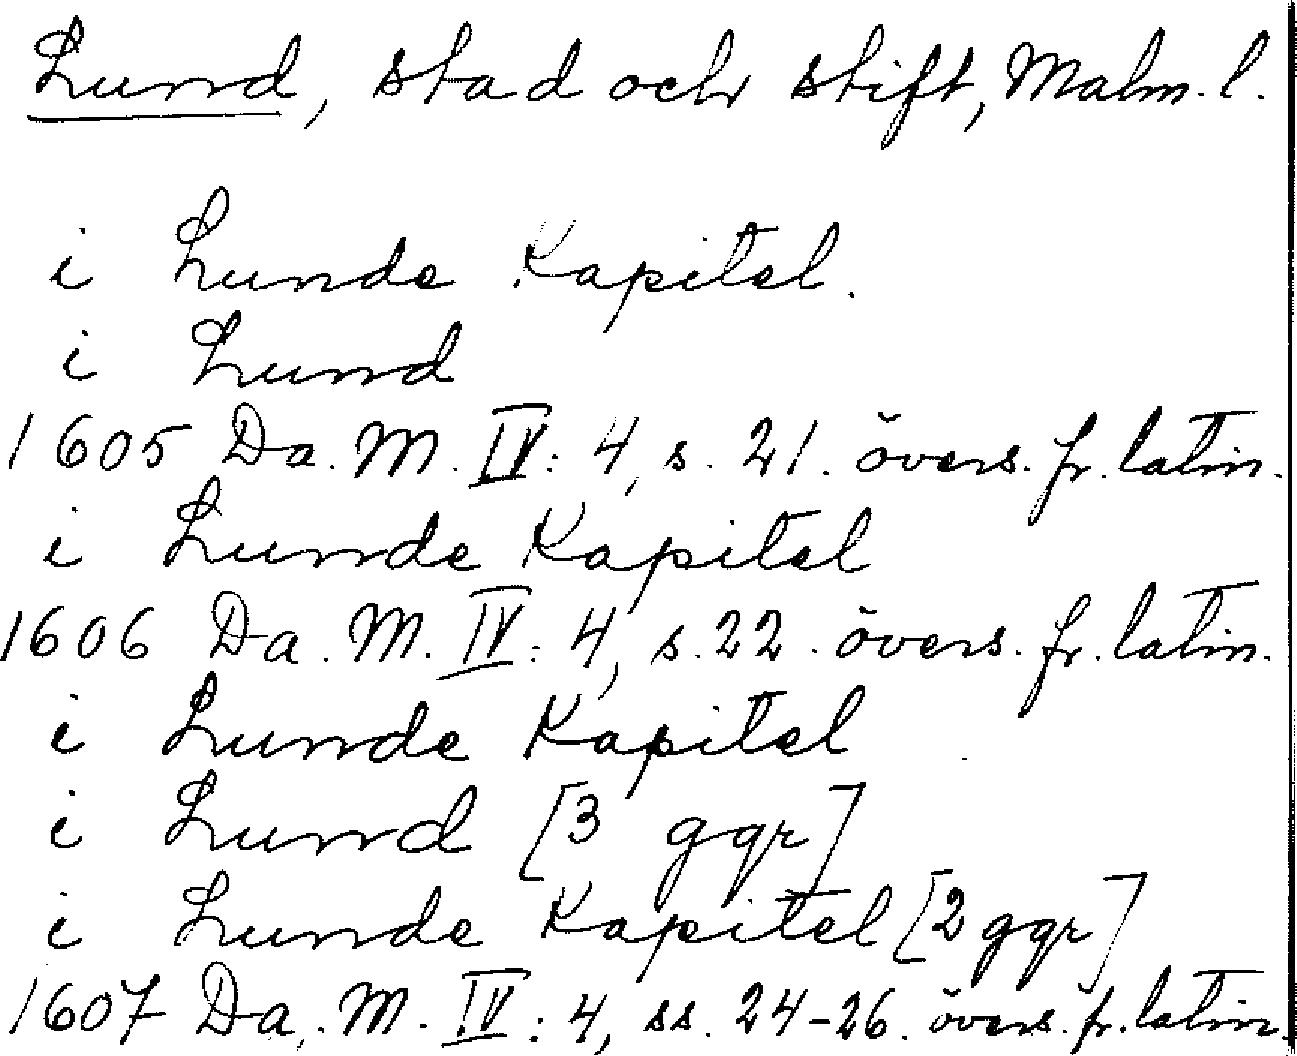 Lund, stad och stift, Malm. l.
i Lunde Kapitel.
i Lund
1605 Da. M. IV: 4, s. 21. övers. fr. latin.
i Lunde Kapitel
1606 Da. M. IV: 4, s. 22. övers. fr. latin.
i Lunde Kapitel
i Lund [3 ggr]
i Lunde Kapitel [2 ggr]
1607 Da. M. IV: 4, ss. 24-26. övers. fr. latin.